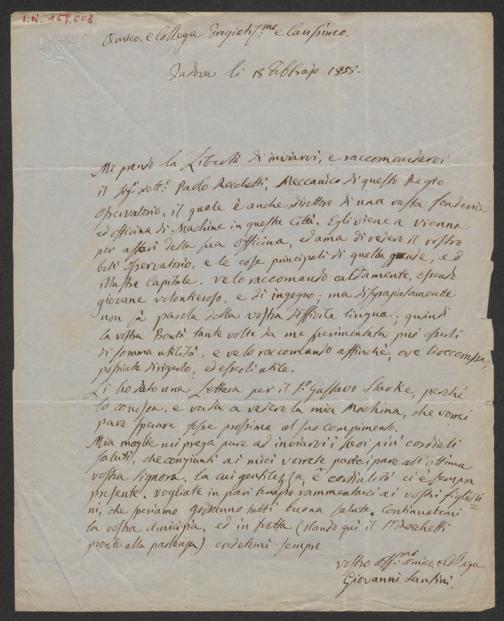 I.N. 159,008
Amico, e Collega Pregiatiss.mo e Carissimo.
Padova li 18 Febbrajo 1855.
Mi prendo la Libertà di inviarvi, e raccomandarvi
il Sig.r Dott.r Paolo Rocchetti, Meccanico di questo Regio
Osservatorio, il quale è anche Direttore di una vasta fonderia
ed officina di Machine in questa Città. Egli viene a Vienna
per affari della sua officina, ed ama di vedere il vostro
bell' Osservatorio, e le cose principali di quella grande, ed
illustre Capitale. Ve lo raccomando caldamente, essendo
giovane volonteroso, e di ingegno; ma disgraziatamente
non sà parola della vostra difficile lingua; quindi
la vostra Bontà tante volte da me sperimentata può essergli
di somma utilità, e ve lo raccomando affinchè, ove l'occorresse,
possiate dirigerlo, ed essergli utile.
Gli ho dato una Lettera per il S.r Gustavo Starke, perchè
lo conosca, e vada a vedere la mia Machina, che vorrei
pure sperare fosse prossima al suo compimento.
Mia moglie mi prega pure ad inviarvi i suoi più cordiali
saluti, che congiunti ai miei vorrete partecipare all' ottima
vostra Signora, la cui gentilezza, e cordialità ci è sempre
presente. Vogliate in pari tempo rammentarci ai vostri figliol=
ni, che speriamo godranno tutti buona salute. Continuatemi
la vostra amicizia, ed in fretta (stando qui il S.r Rocchetti
pronto alla partenza) credetemi sempre
vostro aff.mo amico, e Collega
Giovanni Santini.